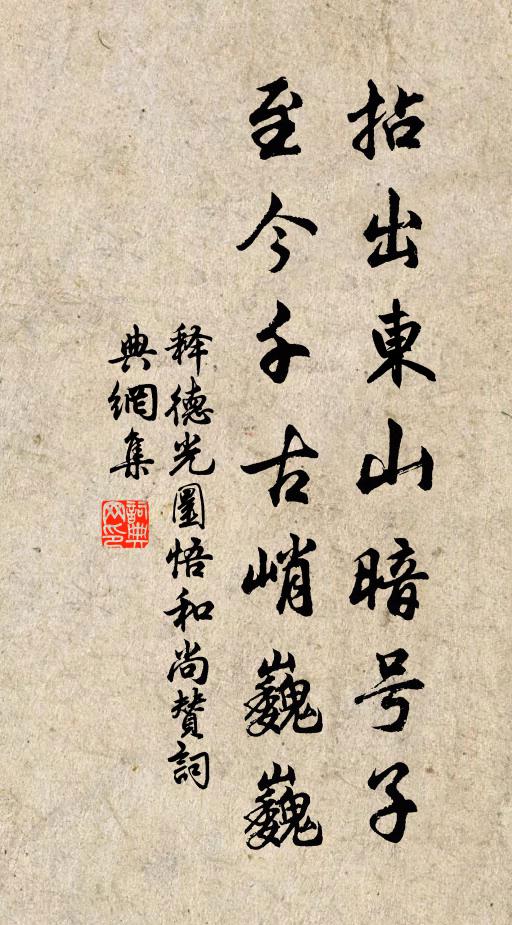 拈出東山暗号子
至今千古峭巍巍
释德光圜悟和尚賛詞
典網集
詞典網印